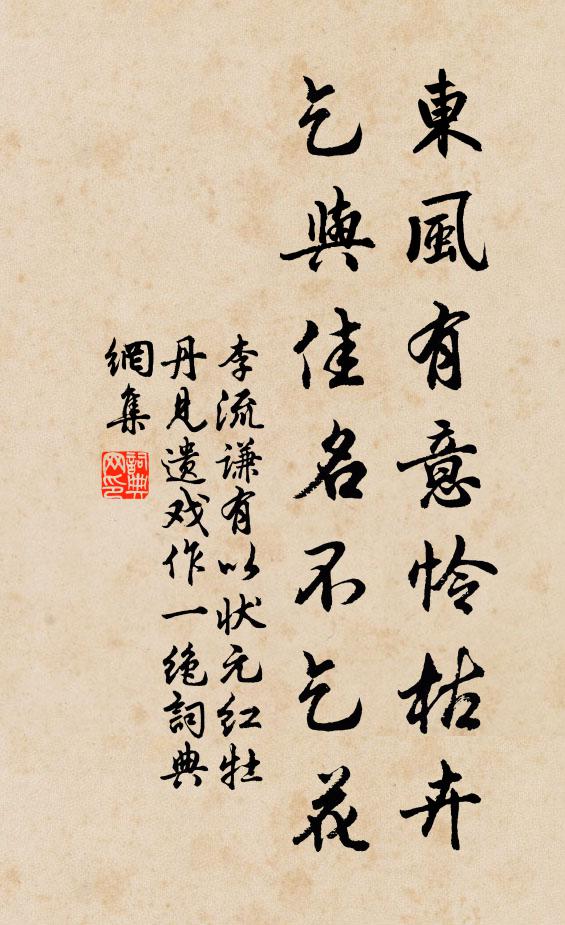 東風有意怜枯卉
乞與佳名不乞花
李流谦有以状元红牡
丹见遗戏作一绝詞典
網集
詞典网印